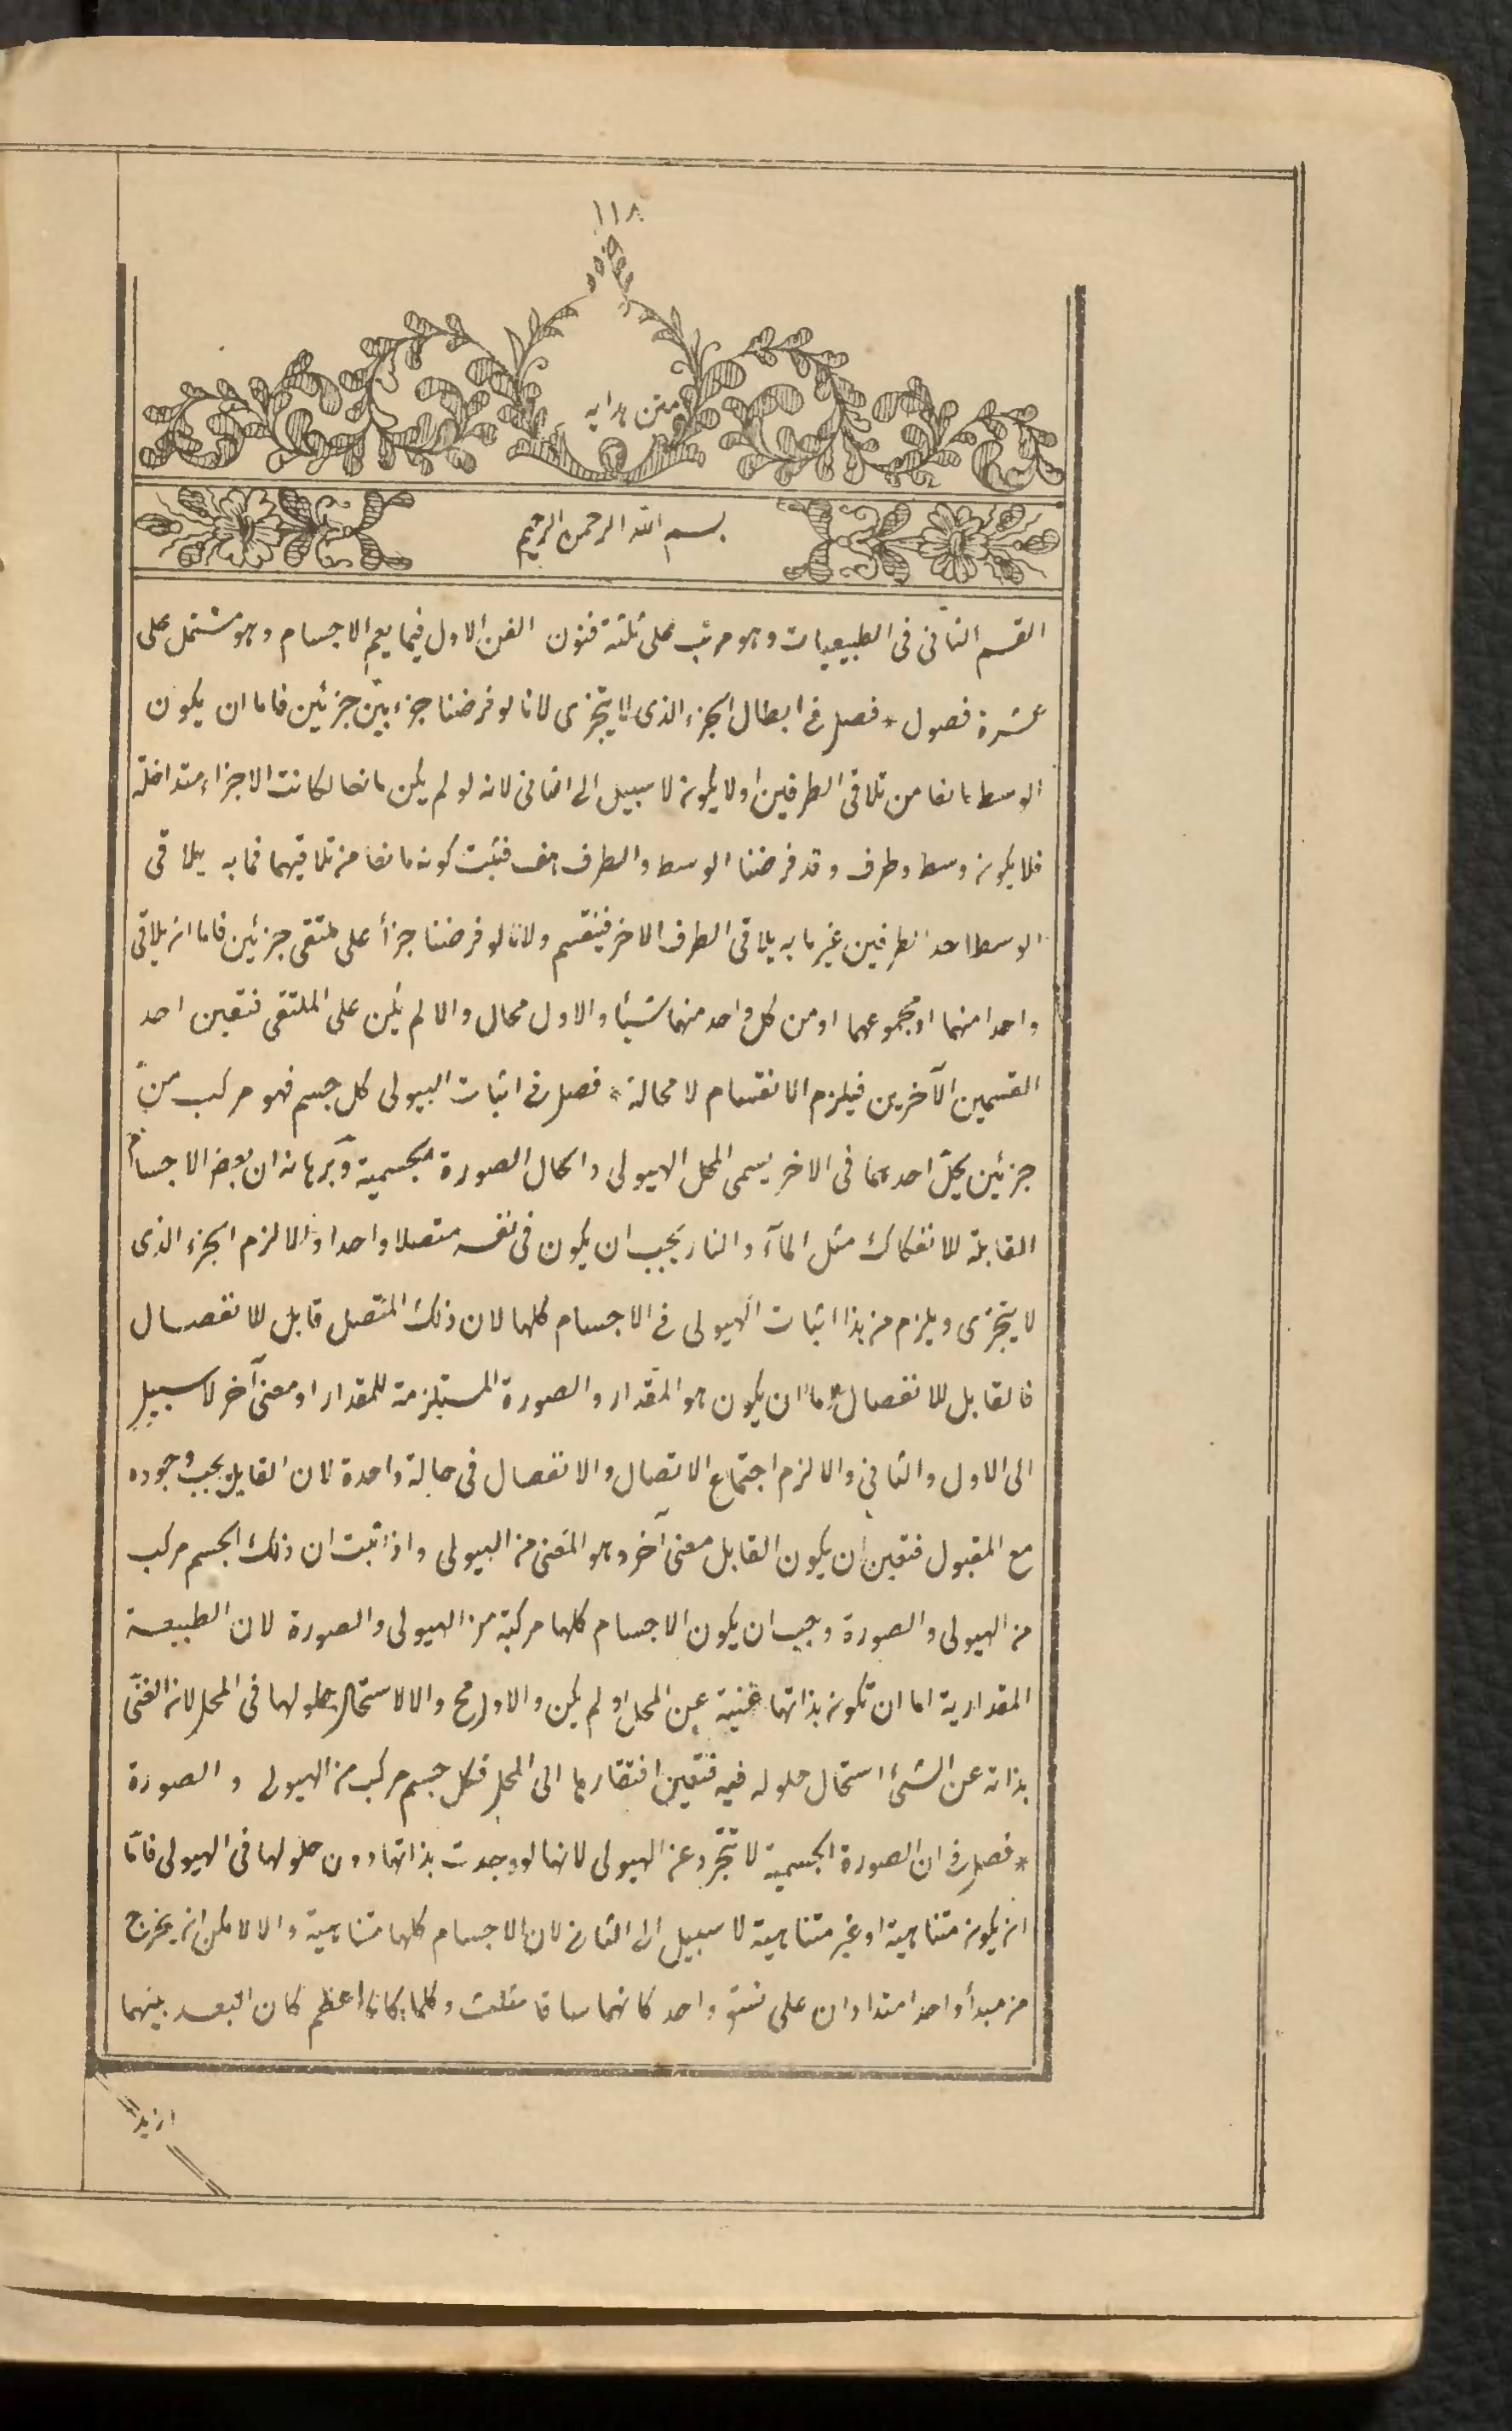 ١١٨
متن هدايه
بسم الله الرحمن الرحيم
القسم الثانى فى الطبيعيات وهو مرتب على ثلثة فنون الفن الاول فيما يعم الاجسام وهو مشتمل على
عشرة فصول * فصل فى ابطال الجزء الذى لا يتجزى لانا لو فرضنا جزء بين جزئين فاما ان يكون
الوسط مانعا من تلاقى الطرفين او لا يكون لا سبيل الى الثانى لانه لو لم يكن مانعا لكانت الاجزاء متداخلة
فلا يكون وسط وطرف وقد فرضنا الوسط والطرف هف فثبت كونه مانعا من تلاقيهما فما به يلاقى
الوسط احد الطرفين غير ما به يلاقى الطرف الاخر فينقسم ولانا لو فرضنا جزأ على ملتقى جزئين فاما ان يلاقى
واحدا منهما او مجموعهما او من كل واحد منهما شيئا والاول محال والا لم يكن على الملتقى فتعين احد
القسمين الآخرين فيلزم الانقسام لا محالة * فصل فى اثبات الهيولى كل جسم فهو مركب من
جزئين يحل احدهما فى الاخر يسمى المحل الهيولى والحال الصورة الجسمية وبرهانه ان بعض الاجسام
القابلة للانفكاك مثل المآء والنار يجب ان يكون فى نفسه متصلا واحدا والا لزم الجزء الذى
لا يتجزى ويلزم من هذا اثبات الهيولى فى الاجسام كلها لان ذلك المتصل قابل للانفصال
فالقابل للانفصال اما ان يكون هو المقدار والصورة المستلزمة للمقدار او معنى آخر لا سبيل
الى الاول والثانى والا لزم اجتماع الاتصال والانفصال فى حالة واحدة لان القابل يجب وجوده
مع المقبول فتعين ان يكون القابل معنى آخر وهو المعنى من الهيولى واذا ثبت ان ذلك الجسم مركب
من الهيولى والصورة وجب ان يكون الاجسام كلها مركبة من الهيولى والصورة لان الطبيعة
المقدارية اما ان تكون بذاتها غنية عن المحل او لم يكن والاول مح والا لاستحال حلولها فى المحل لان الغنى
بذاته عن الشئ استحال حلوله فيه فتعين افتقارها الى المحل فكل جسم مركب من الهيولى و الصورة
* فصل فى ان الصورة الجسمية لا تتجرد عن الهيولى لانها لو وجدت بذاتها دون حلولها فى الهيولى فاما
ان يكون متناهية او غير متناهية لا سبيل الى الثانى لان الاجسام كلها متناهية والا لامكن ان يخرج
من مبدأ واحد امتدادان على نسق واحد كانهما ساقا مثلث وكلما كانا اعظم كان البعد بينهما
ازيد